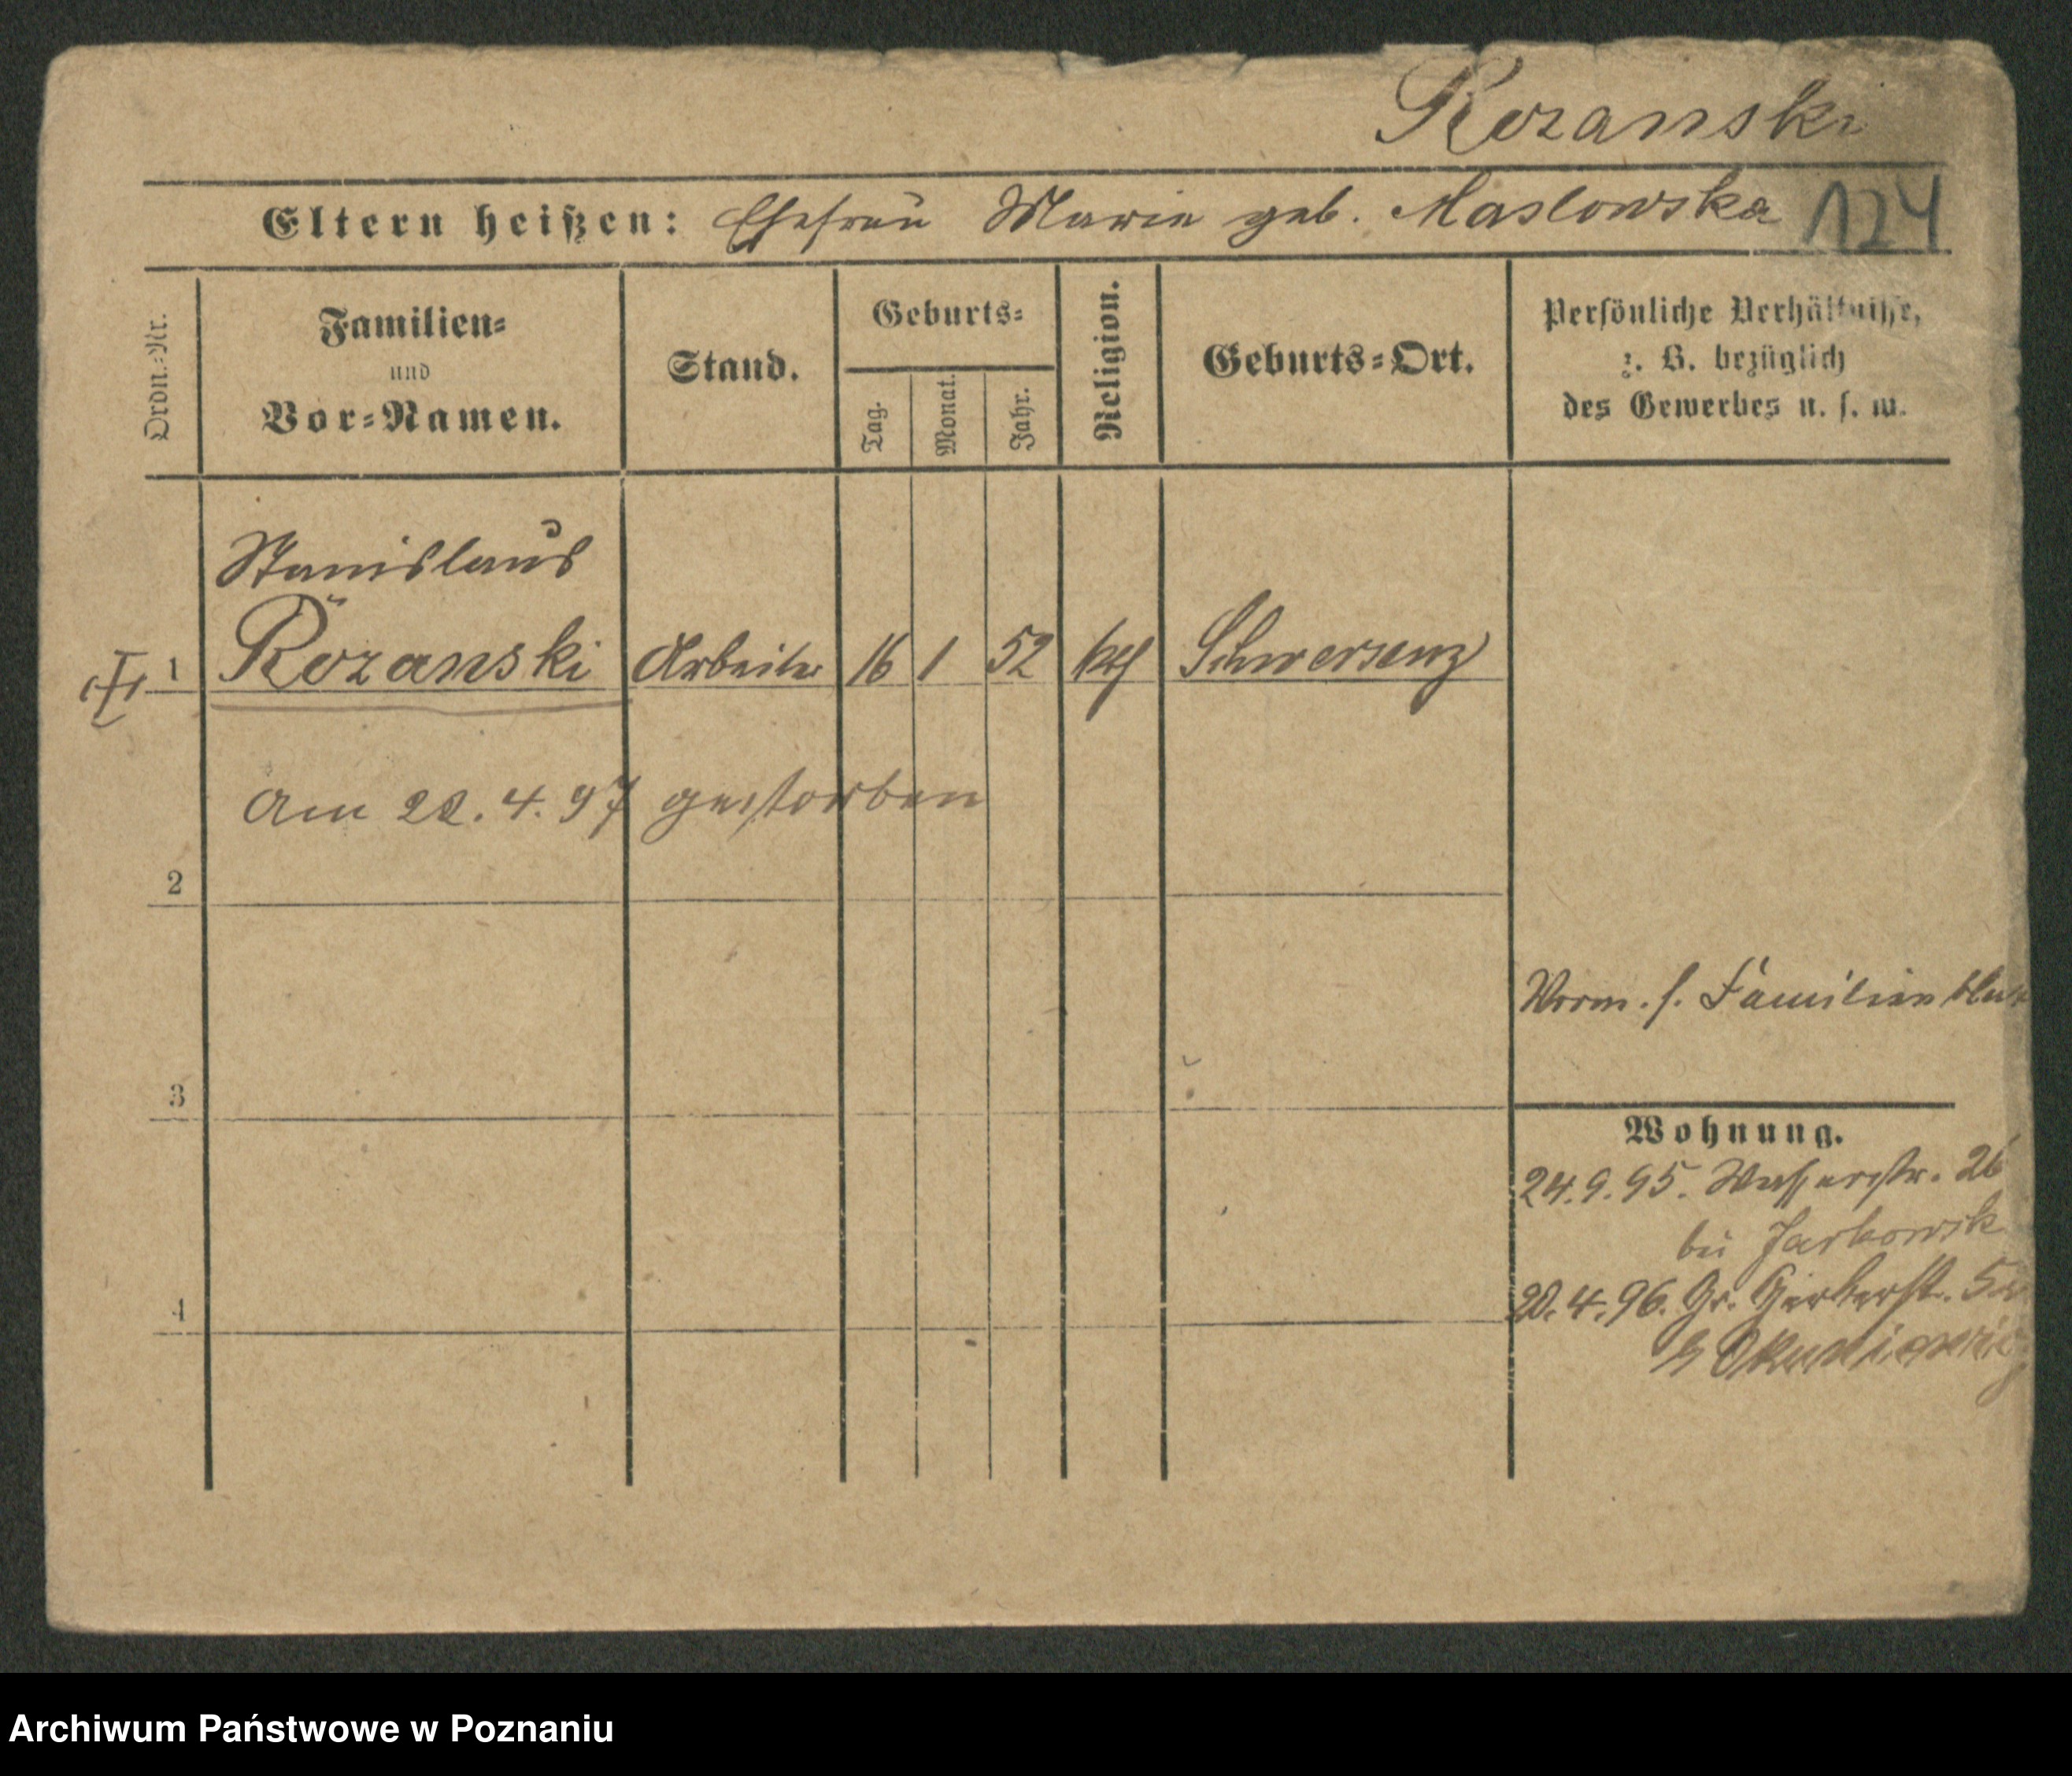 Rozanski
Eltern heißen: Ehefrau Marie geb. Maslowska 124
Ordn.-Nr.
Familien-
und
Vor-Namen.
Stand.
Geburts-
Tag.
Monat.
Jahr.
Religion.
Geburts-Ort.
Persönliche Verhältnisse,
z. B. bezüglich
des Gewerbes u. s. w.
Stanislaus
1 Rozanski Arbeiter 16 1 52 kth Schwersenz
am 22.4.97 gestorben
2
Verm. s. Familienblatt
3
Wohnung.
24.9.95. Wasserstr. 26
bei
4
20.4.96. Gr. Gerberst.
Archiwum Państwowe w Poznaniu